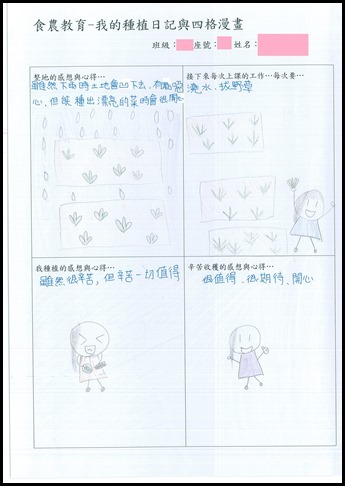 食農教育-我的種植日記與四格漫畫
班級： 座號： 姓名：
整地的感想與心得…
雖然下雨時土地會凹下去，有點噁
心，但後種出漂亮的菜時會很開心
接下來每次上課的工作…每次要…
澆水、拔野草
我種植的感想與心得…
雖然很辛苦，但辛苦一切值得
辛苦收穫的感想與心得…
很值得、很期待、開心